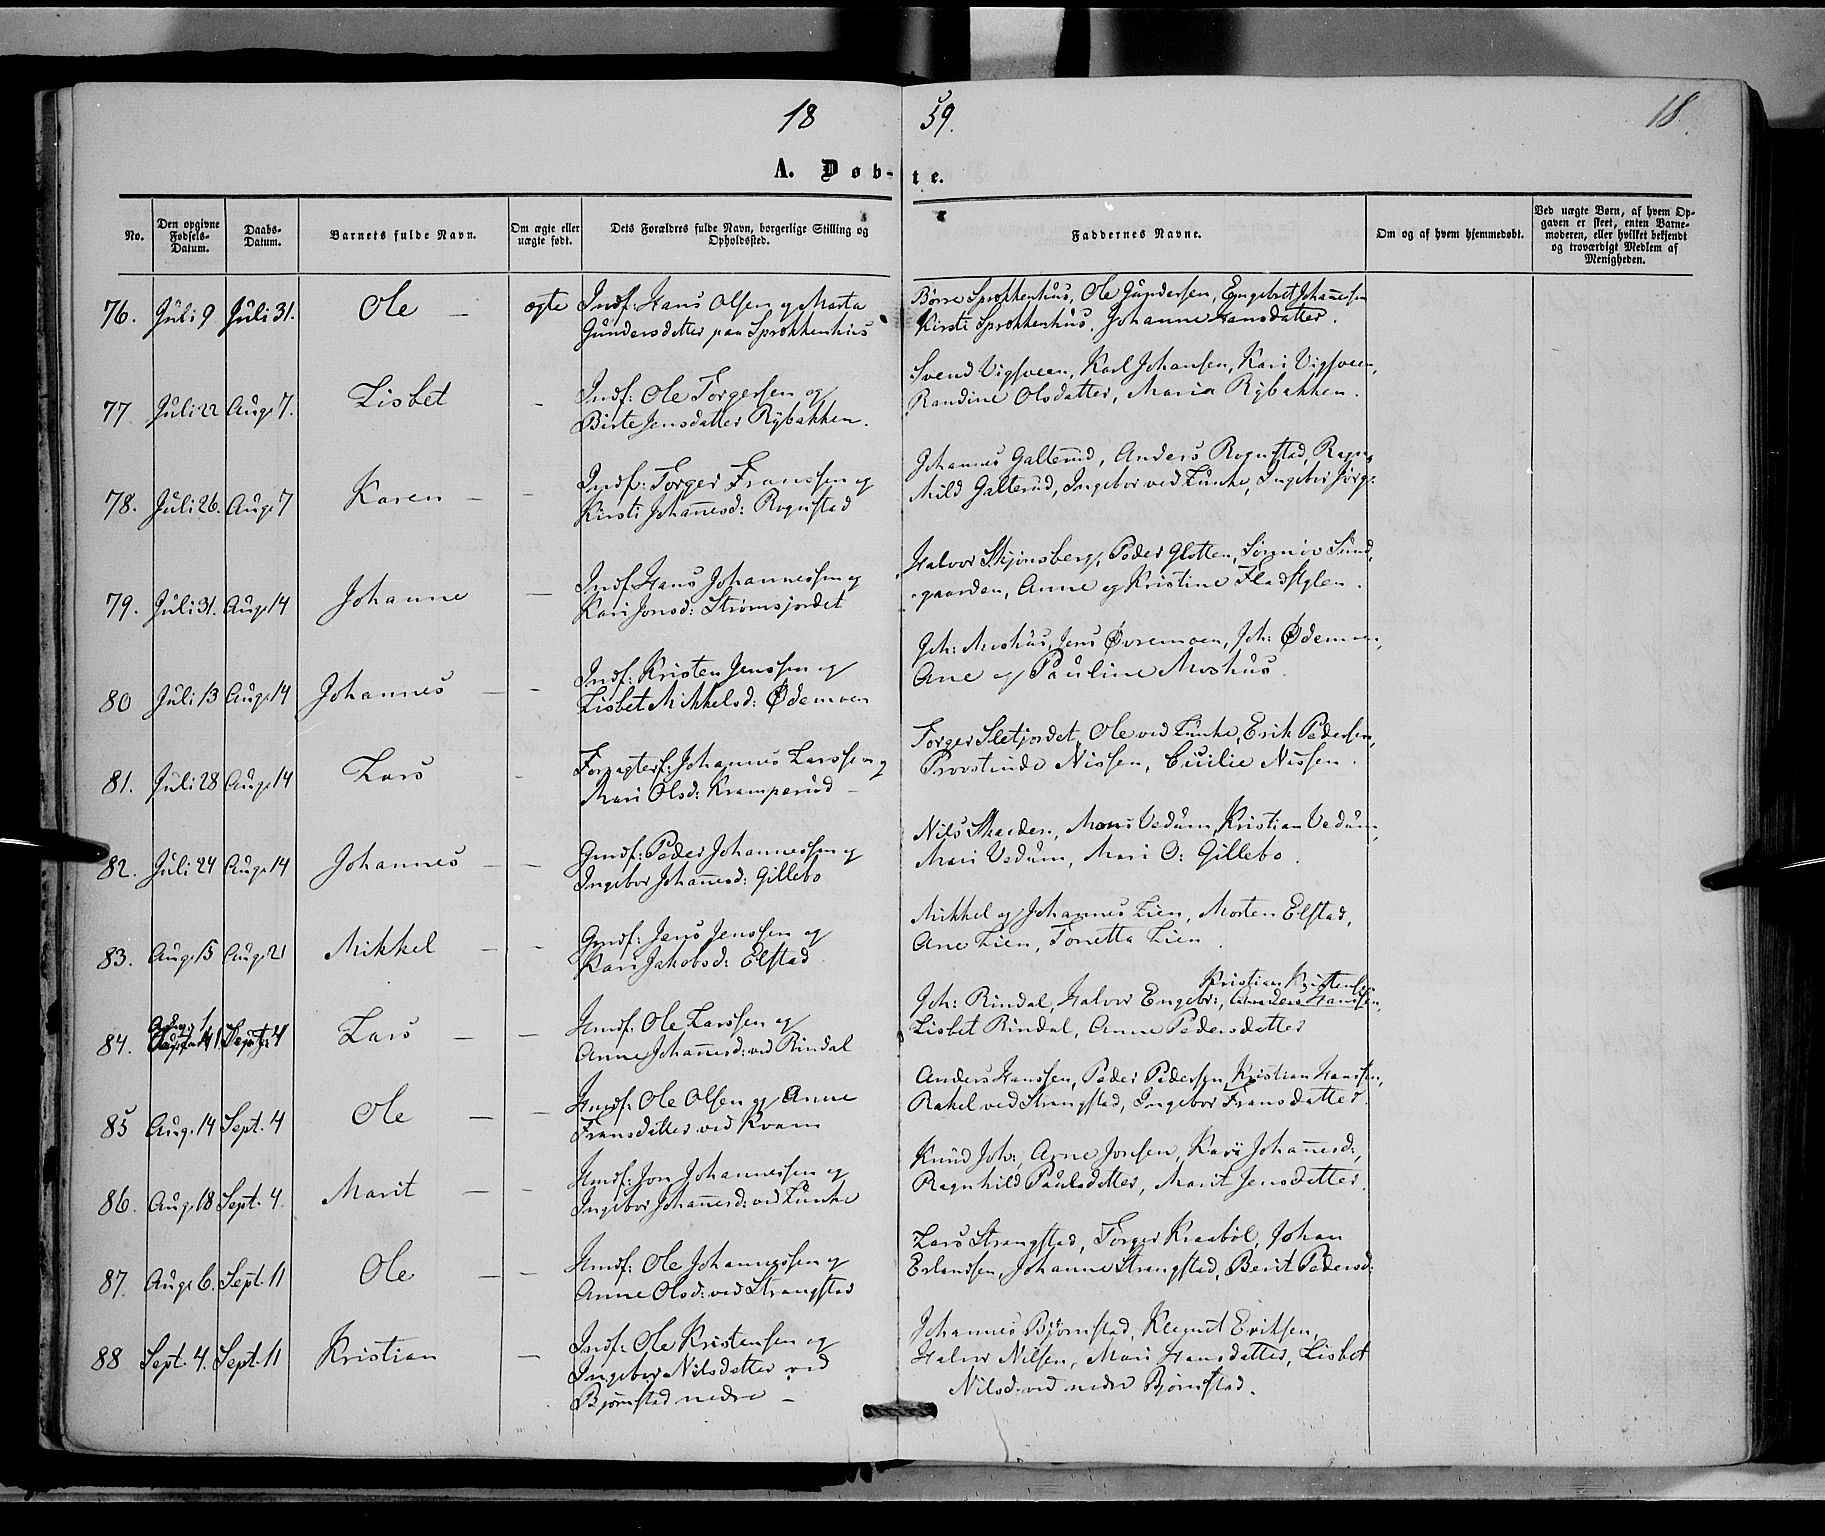 18 59. 18.
A. Døb- te.
No. Den opgivne Fødsels-Datum. Daabs-Datum. Barnets fulde Navn. Om ægte eller uægte født. Dets Forældres fulde Navn, borgerlige Stilling og Opholdssted. Faddernes Navne. Om og af hvem hjemmedøbt. Ved uægte Børn, af hvem Opgaven er skeet, enten Barnemoderen, eller hvilket bekjendt og troværdigt Medlem af Menigheden.
76. Juli 9 Juli 31. Ole — ægte Indf: Hans Olsen og Marta
Gundersdatter paa Sprækkenhus
Børre Sprækkenhus, Ole Gundersen, Engebret Johannesen
Kirsti Sprækkenhus, Johanne Hansdatter.
77. Juli 22 Aug. 7. Lisbet — Indf: Ole Torgersen og
Birte Jensdatter Rybakken.
Svend Vigsveen, Karl Johansen, Kari Vigsveen,
Randine Olsdatter, Maria Rybakken.
78. Juli 26. Aug. 7 Karen — — Indf: Torger Franssen og
Kirsti Johannesd: Rognstad
Johannes Galterud, Anders Rognstad, Ragn-
hild Galterud, Ingebor ved Lunke, Ingebor Jörg:
79. Juli 31. Aug. 14 Johanne — Indf. Hans Johannessen og
Kari Jonsd: Strømsjordet
Halvor Skjønsberg, Peder Glotten, Sund-
gaarden, Anne og Kristine Fladstylen.
80 Juli 13 Aug. 14 Johannes — — Indf: Kristen Jenssen og
Lisbet Mikkelsd: Ødemoen
Joh: Moshus, Jens Øvremoen, Joh: Ødemoen,
Ane og Pauline Moshus.
81. Juli 28 Aug. 14 Lars — Forpagterf: Johannes Larssen og
Mari Olsd: Kramperud —
Torger Sletjordet, Ole ved Lunke, Erik Pedersen,
Provstinde Nissen, Cecilie Nissen.
82. Juli 24 Aug. 14 Johannes — — Gmdf: Peder Johannessen og
Ingebor Johannesd: Gillebo
Nils Skarden, Mons Vedum, Kristian Vedum,
Mari Vedum, Mari O: Gillebo.
83. Aug. 15 Aug. 21 Mikkel — — Gmdf: Jens Jenssen og
Kari Jakobsd: Elstad
Mikkel og Johannes Lien, Morten Elstad,
Ane Lien, Tonetta Lien.
84. Sept. 4 Lars — — Hmdf: Ole Larssen og
Anne Johannesd: ved Rindal
Kristian Kristens:
Joh: Rindal, Halvor Engebr:, Anders Hanssen,
Lisbet Rindal, Anne Pedersdatter
85 Aug. 14 Sept. 4 Ole — — Hmdf: Ole Olsen og Anne
Fransdatter ved Kvam
Anders Hanssen, Peder Pedersen, Kristian Hanssen,
Rakel ved Strangstad, Ingebor Fransdatter.
86. Aug. 18 Sept. 4. Marit — — Hmdf: Jon Johannessen og
Ingebor Johannesd: ved Lunke
Knud Joh:, Arne Jonsen, Kari Johannesd:,
Ragnhild Paulsdatter, Marit Jensdatter.
87. Aug. 6. Sept. 11 Ole — — Hmdf: Ole Johannessen og
Anne Olsd: ved Strangstad
Lars Strangstad, Torger Kraabøl, Johan
Erlandsen, Johanne Strangstad, Berit Pedersd:
88 Sept. 4. Sept. 11 Kristian — Indf: Ole Kristensen og
Ingebor Nilsdatter ved
Bjørnstad nedre —
Johannes Bjørnstad, Klemet Eriksen,
Halvor Nilsen, Mari Hansdatter, Lisbet
Nilsd: ved nedre Bjørnstad.